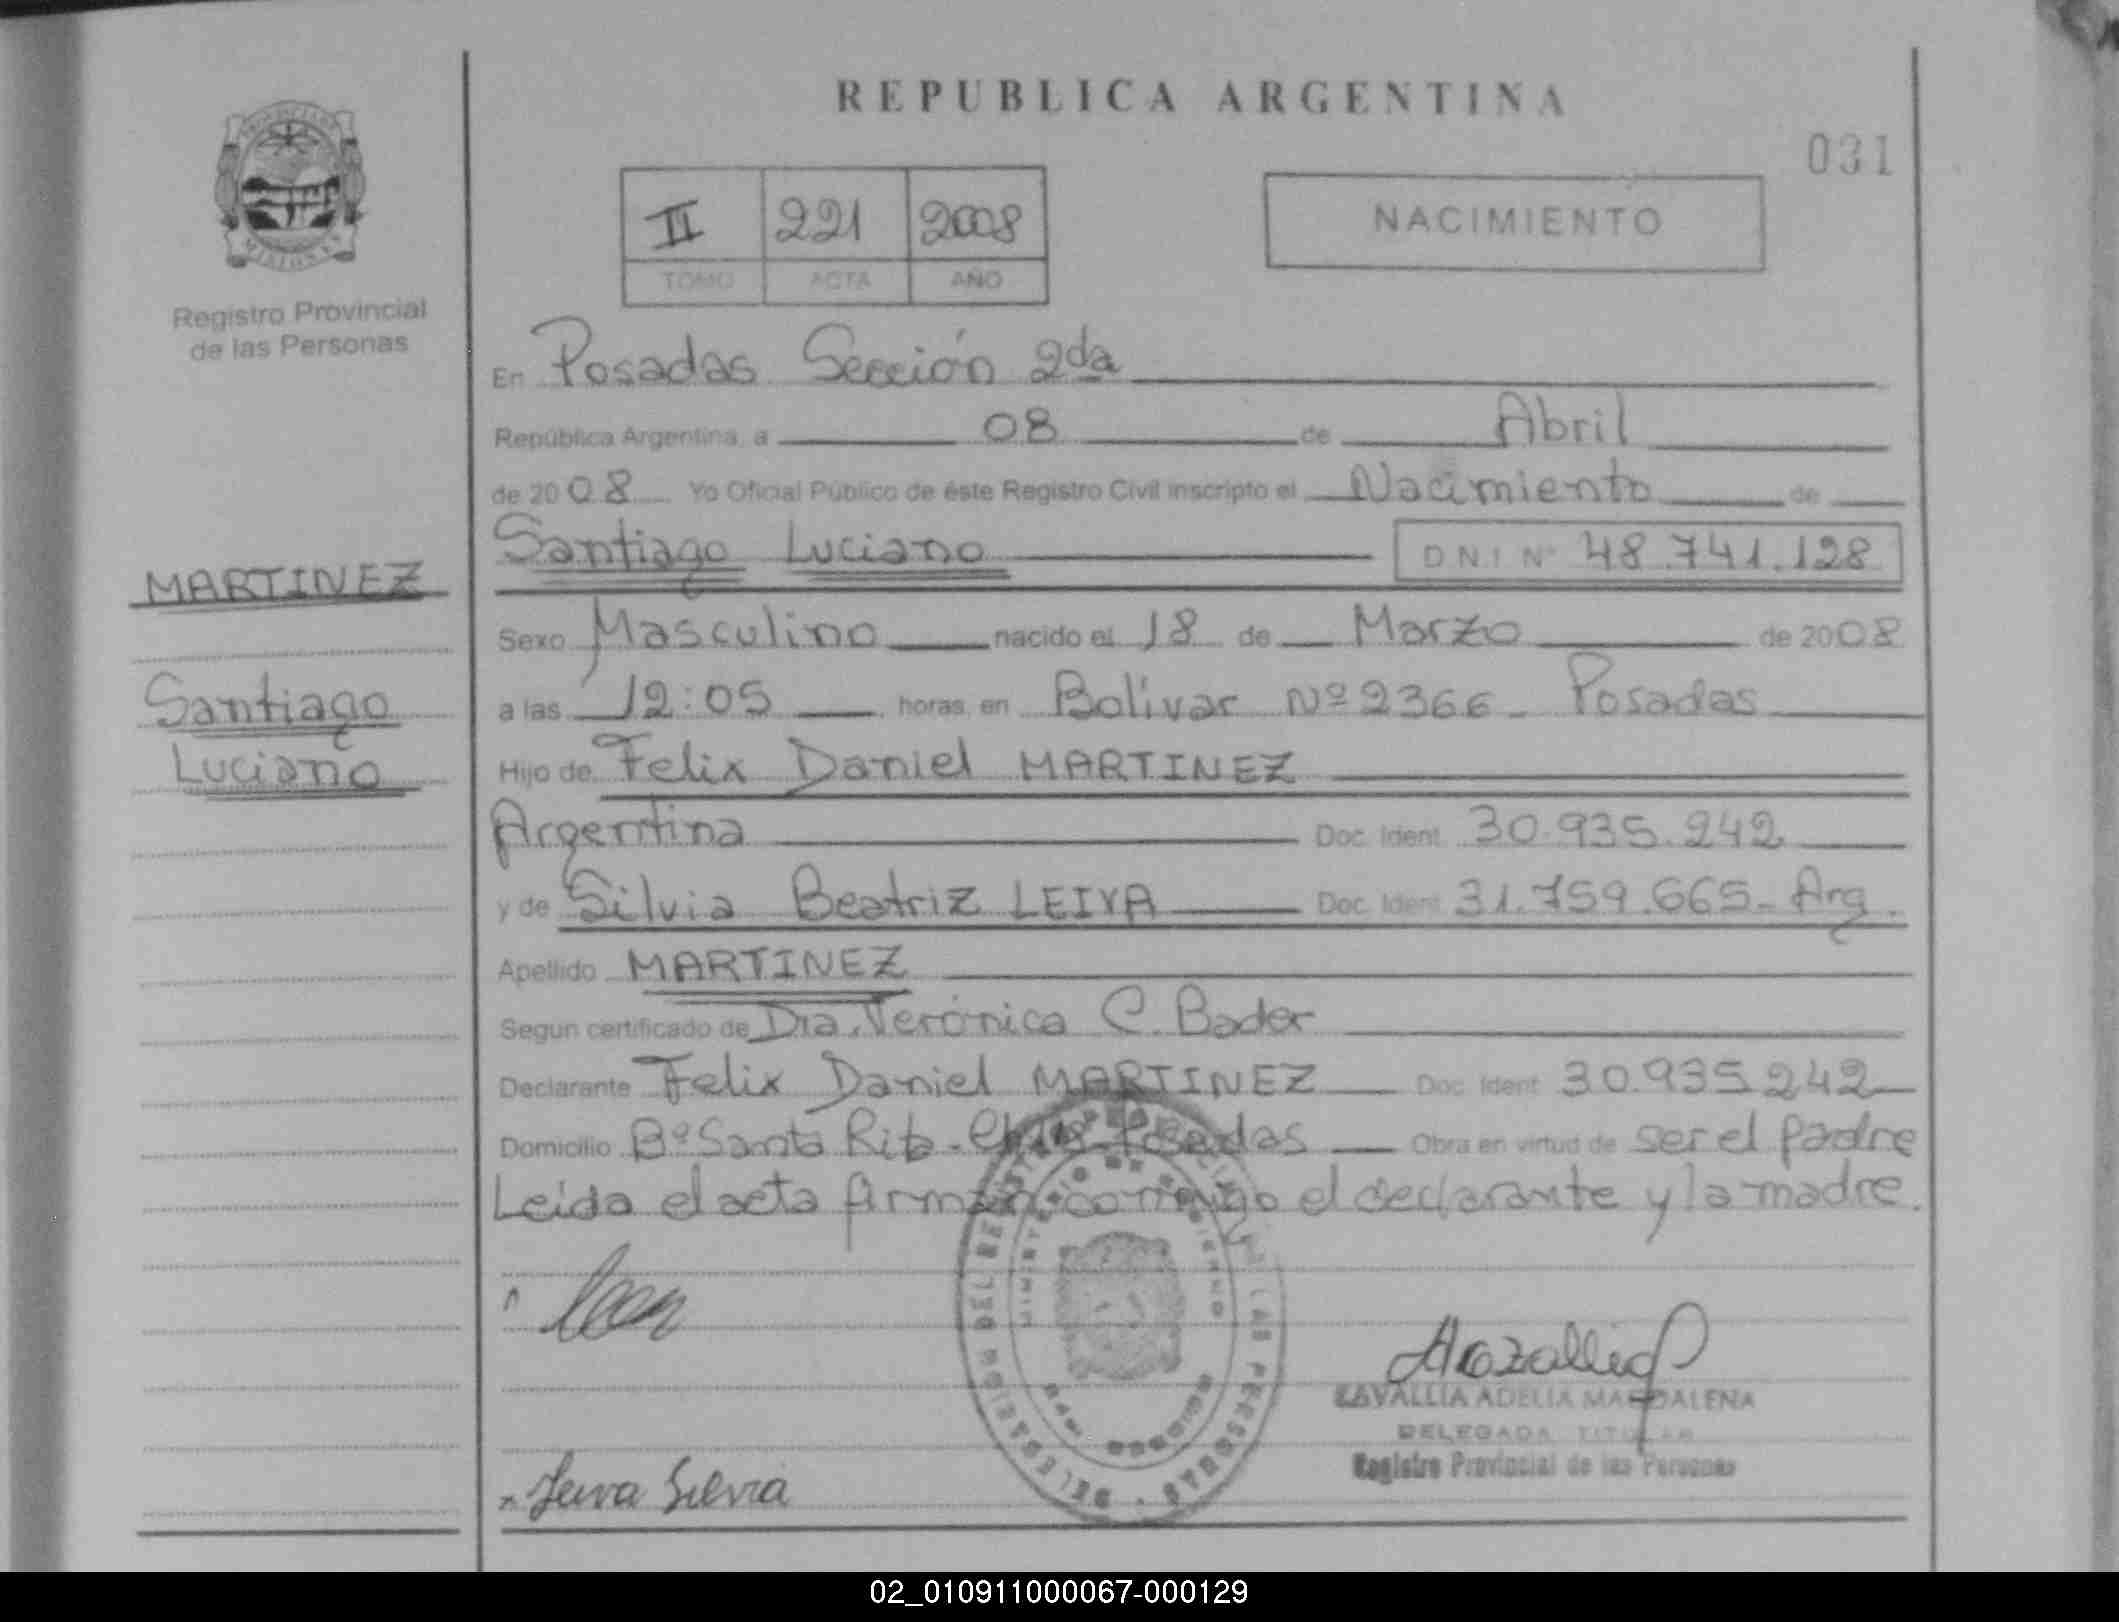 REPUBLICA ARGENTINA
031
II 221 2008
TOMO ACTA AÑO
NACIMIENTO
MISIONES
Registro Provincial
de las Personas
En Posadas Sección 2da
República Argentina, a 08 de Abril
de 2008 Yo Oficial Público de éste Registro Civil inscripto el Nacimiento de
Santiago Luciano D.N.I. Nº 48.741.128
MARTINEZ
Santiago
Luciano
Sexo Masculino nacido el 18 de Marzo de 2008
a las 12:05 horas, en Bolívar Nº 2366 - Posadas
Hijo de Felix Daniel MARTINEZ
Argentina Doc. Ident. 30.935.242
y de Silvia Beatriz LEIVA Doc. Ident. 31.759.665 - Arg.
Apellido MARTINEZ
Segun certificado de Dra. Verónica C. Bader
Declarante Felix Daniel MARTINEZ Doc. Ident. 30.935.242
Domicilio Bº Santa Rita - Posadas Obra en virtud de ser el padre
Leida el acta firman conmigo el declarante y la madre.
DELEGACION DEL REGISTRO PROVINCIAL DE LAS PERSONAS
MINISTERIO DE GOBIERNO
ZAVALLIA ADELIA MAGDALENA
DELEGADA TITULAR
Registro Provincial de las Personas
Leiva Silvia
02_010911000067-000129